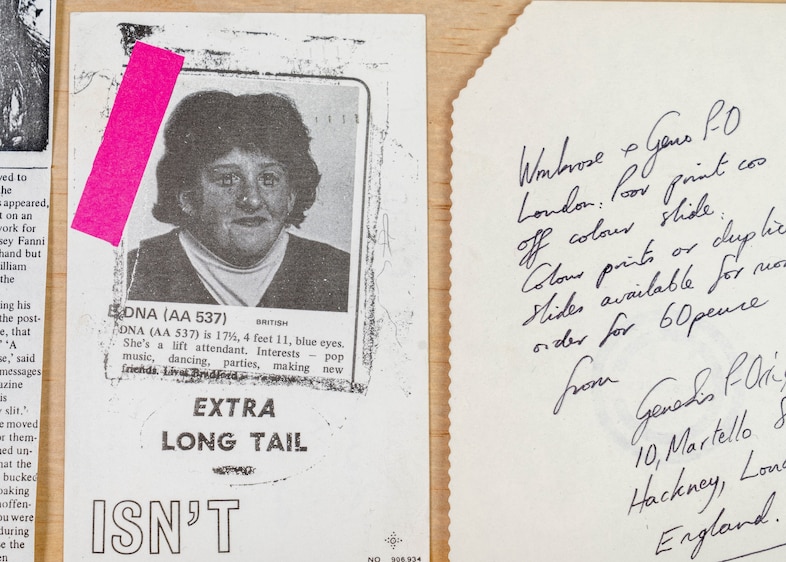 ved to
he
s appeared,
t on an
work for
sey Fanni
hand but
illiam
the
ing his
the post-
e, that
' 'A
se,' said
messages
azine
is
y slit.'
e moved
or them-
ned un-
hat the
bucked
oaking
noffen-
ou were
during
se the
en
DNA (AA 537)
BRITISH
DNA (AA 537) is 17½, 4 feet 11, blue eyes.
She's a lift attendant. Interests – pop
music, dancing, parties, making new
friends. Lives Bradford
EXTRA
LONG TAIL
ISN'T
NO 906,934
Wombrose & Geno P-O
London: Poor print cos
off colour slide.
Colour prints or duplic
slides available for
order for 60pence
from
Genesis P-Orri
10, Martello S
Hackney, Lond
England.